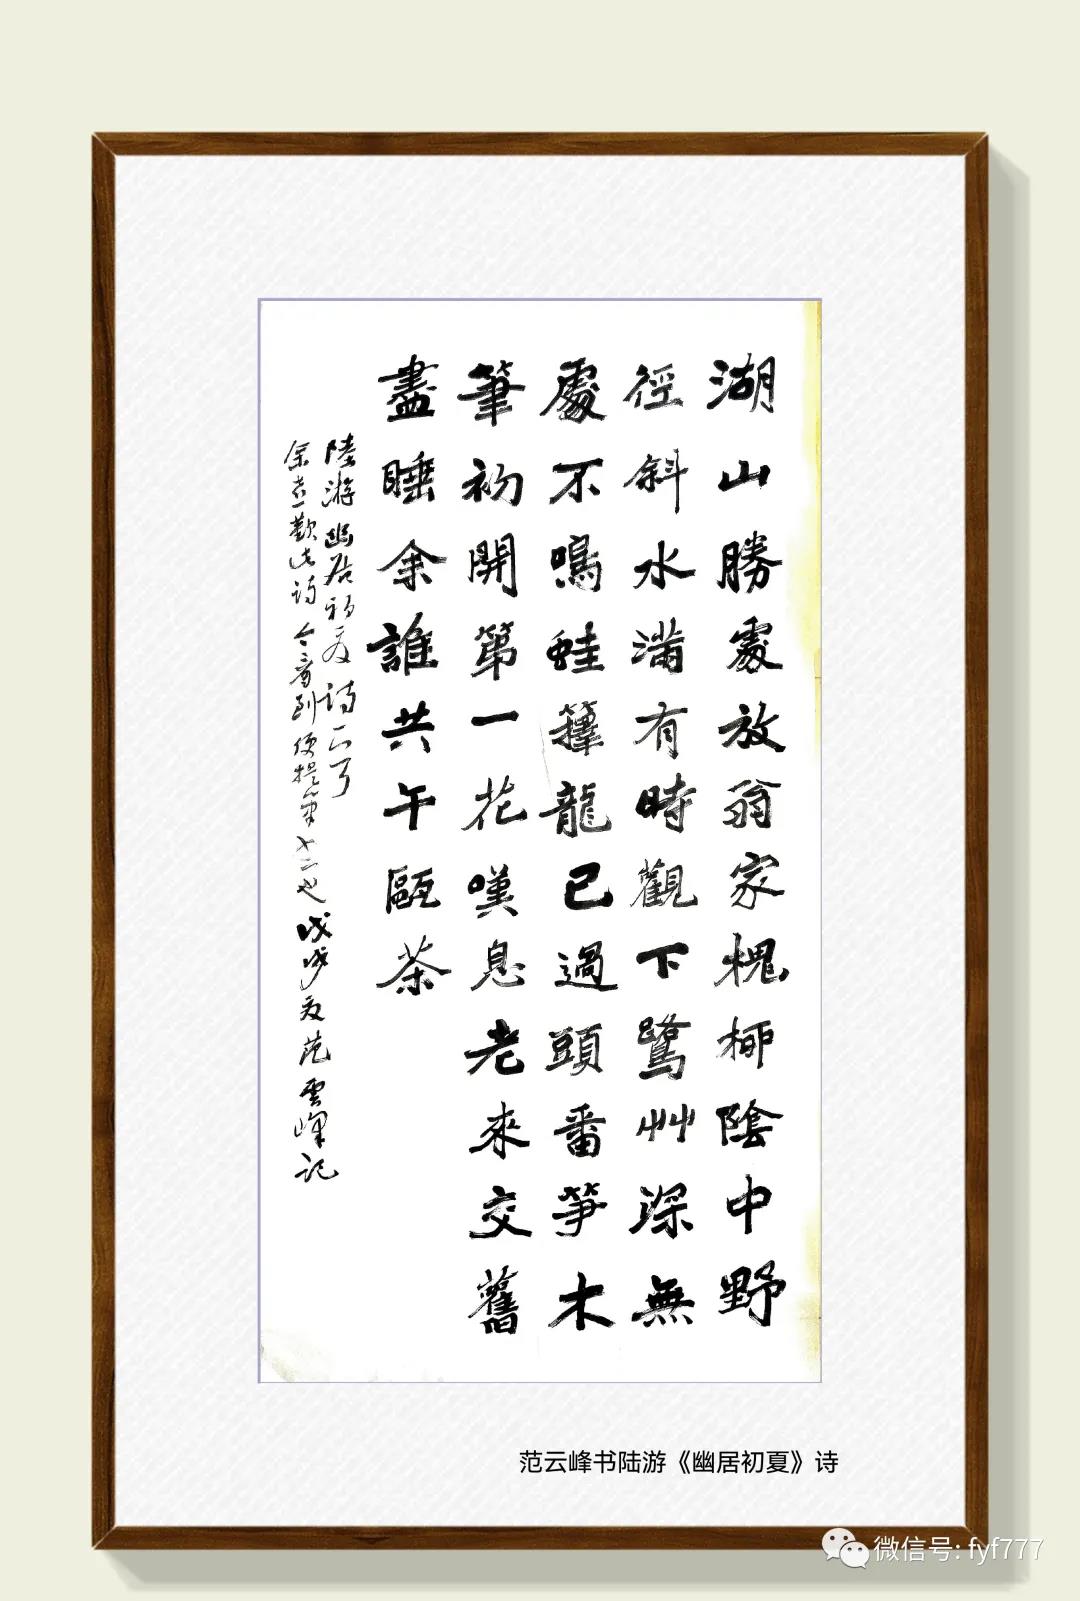 湖山勝處放翁家槐柳陰中野
徑斜水滿有時觀下鷺艸深無
處不鳴蛙籜龍已過頭番笋木
筆初開第一花嘆息老來交舊
盡睡余誰共午甌茶
陸游幽居初夏詩一首
余喜歡此詩今看到便提筆也戊戌夏范雲峰記
范云峰书陆游《幽居初夏》诗
微信号: fyf777